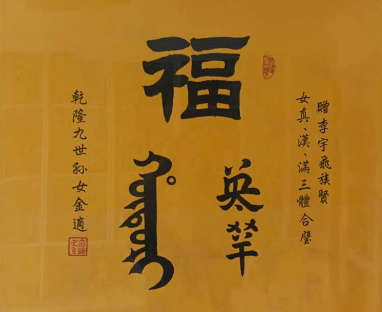 贈李宇飛族賢
女真、漢、滿三體合璧
福
乾隆九世孫女金適